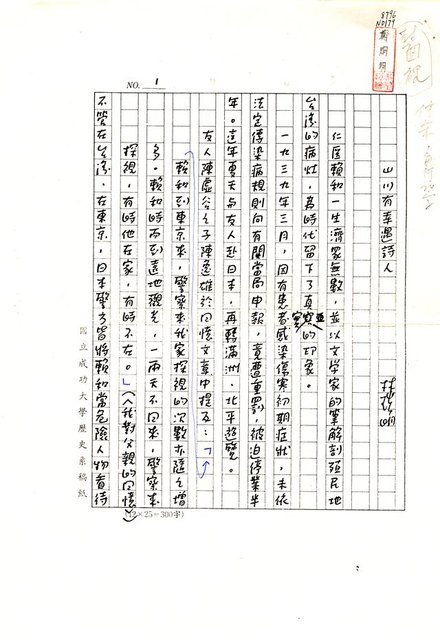 8796
ND179
NO. 1
山川有幸遇詩人
林瑞明
仁醫賴和一生濟眾無數，並以文學家的筆解剖殖民地
台灣的病灶，為時代留下了真實的印象。
一九三九年三月，因有患者感染傷寒初期症狀，未依
法定傳染病規則向有關當局申報，竟遭重罰，被迫停業半
年。這年夏天與友人赴日本，再轉滿洲、北平遊覽。
友人陳虛谷之子陳逸雄於回憶文章中提及：「
賴和到東京來，警察來我家探視的次數亦隨之增
多。賴和時而到遠地觀光，一兩天不回來，警察來
探視，有時他在家，有時不在。」（〈我對父親的回憶〉）
不管在台灣、在東京，日本警方皆將賴和當危險人物看待
(12×25=300字)
國立成功大學歷史系稿紙